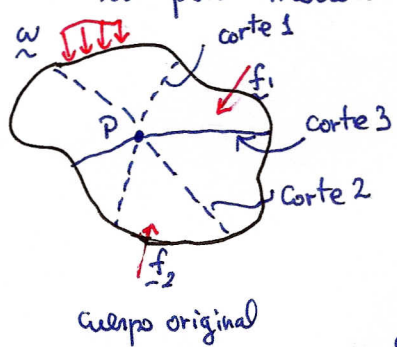 corte 1
ω
f1
P
corte 3
corte 2
f2
cuerpo original